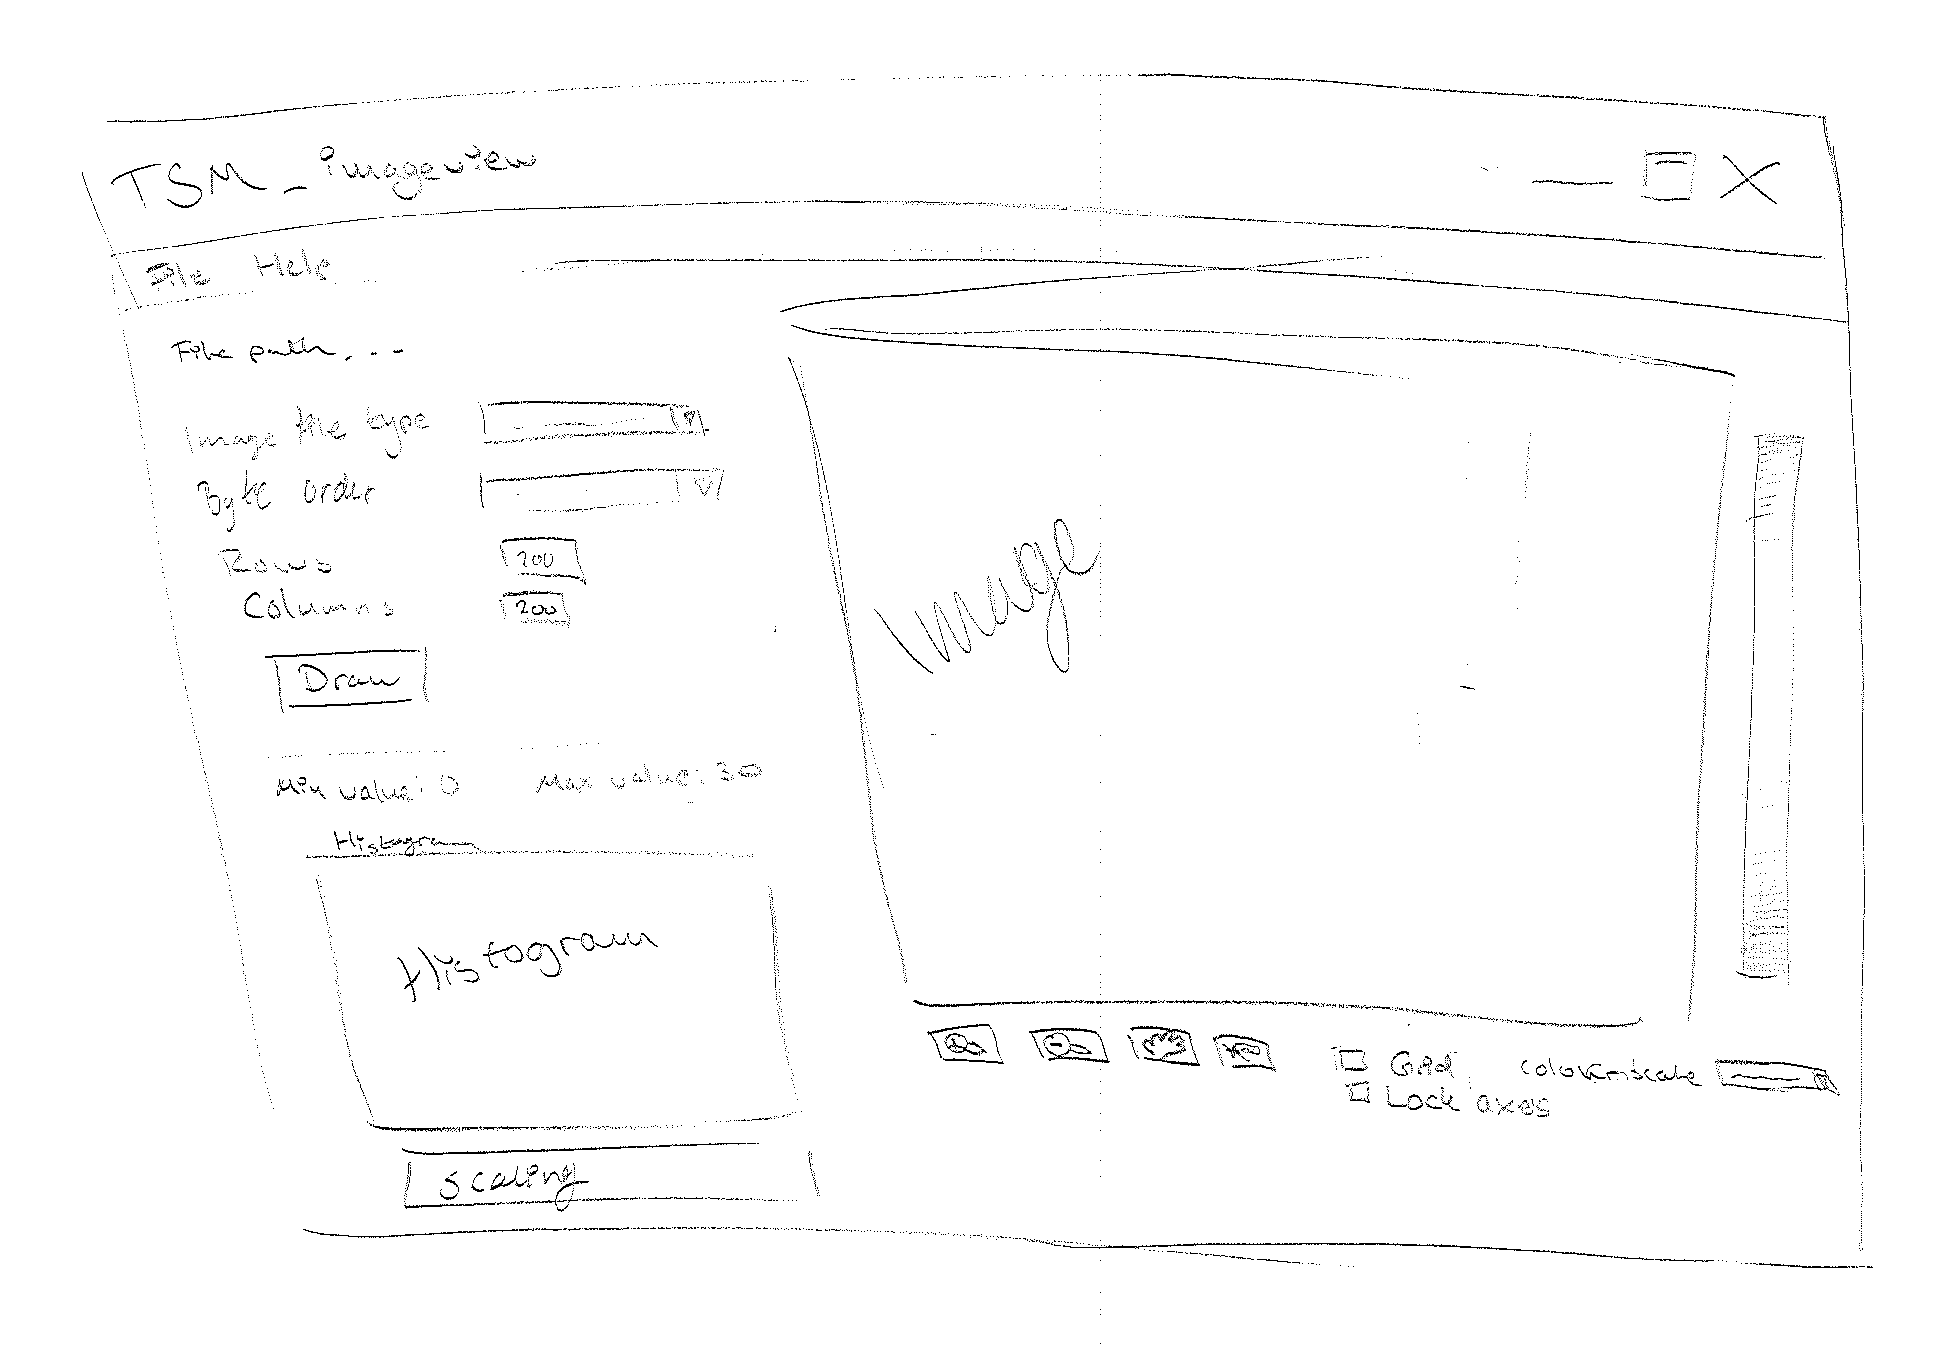 TSM_imageview
File Help
File path...
Image file type
Byte order
Rows 200
Columns 200
Draw
Min value: 0 Max value: 30
Histogram
Histogram
Scaling
Image
Grid
Lock axes